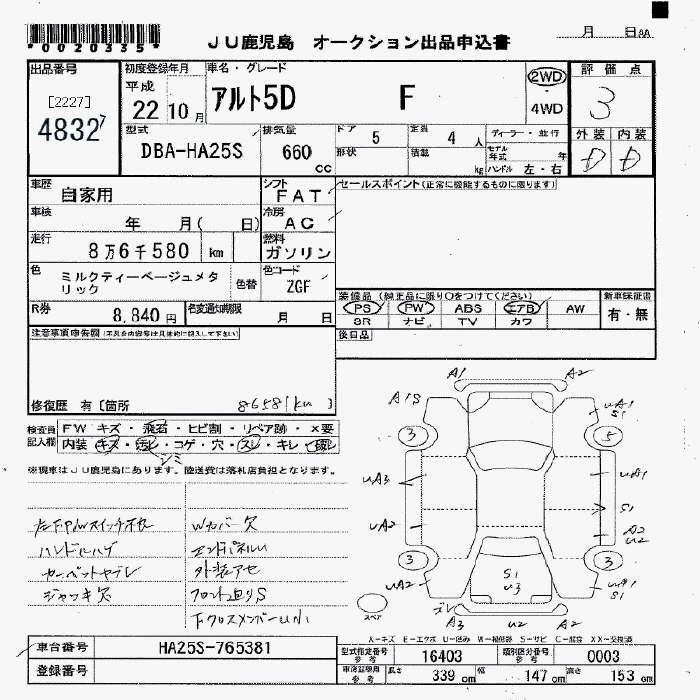 *0020335*
JU鹿児島 オークション出品申込書
月 日
出品番号
[2227]
4832
初度登録年月
平成
22 10月
車名・グレード
アルト5D F
2WD
・
4WD
評価点
3
外装 内装
D D
型式
DBA-HA25S
排気量
660
cc
ドア 5
定員 4人
形状
積載 kg
ディーラー・並行
モデル年式 年
ハンドル 左・右
車歴 自家用
シフト FAT
セールスポイント(正常に機能するものに限ります)
車検 年 月( 日)
冷房 AC
走行 8万6千580 km
燃料 ガソリン
色 ミルクティーベージュメタリック
色替
色コード ZGF
R券 8,840円
名変通知期限 月 日
装備品(純正品に限り○をつけてください)
PS PW ABS エアB AW
SR ナビ TV カワ
新車保証書
有・無
後日品
注意事項申告欄(不具合内容等は具体的に記入して下さい)
修復歴 有〔箇所
86581km)
検査員記入欄
FW キズ・飛石・ヒビ割・リペア跡・×要
内装・キズ・汚レ・コゲ・穴・スレ・キレ・破レ
シミ
※現車はJU鹿児島にあります。陸送費は落札店負担となります。
左FP/Wスイッチ不良
ハンドルハゲ
カーペットヤブレ
ジャッキ欠
Wカバー欠
エンドパネルU
外装アセ
フロント廻りS
FクロスメンバーU小
A1 A2
A1S
uA1
S1
3 5
uA3
uA1
S1
uA2
A2
u2
3 3
uA2
S1
u3
uA1
S1
スペア
ズレ
A3 u2 A2
A-キズ E-エクボ U-凹み W-補修跡 S-サビ C-腐食 XX-交換済
車台番号 HA25S-765381
登録番号
型式指定番号 参考 16403
類別区分番号 参考 0003
長さ 339cm 幅 147cm 高さ 153cm